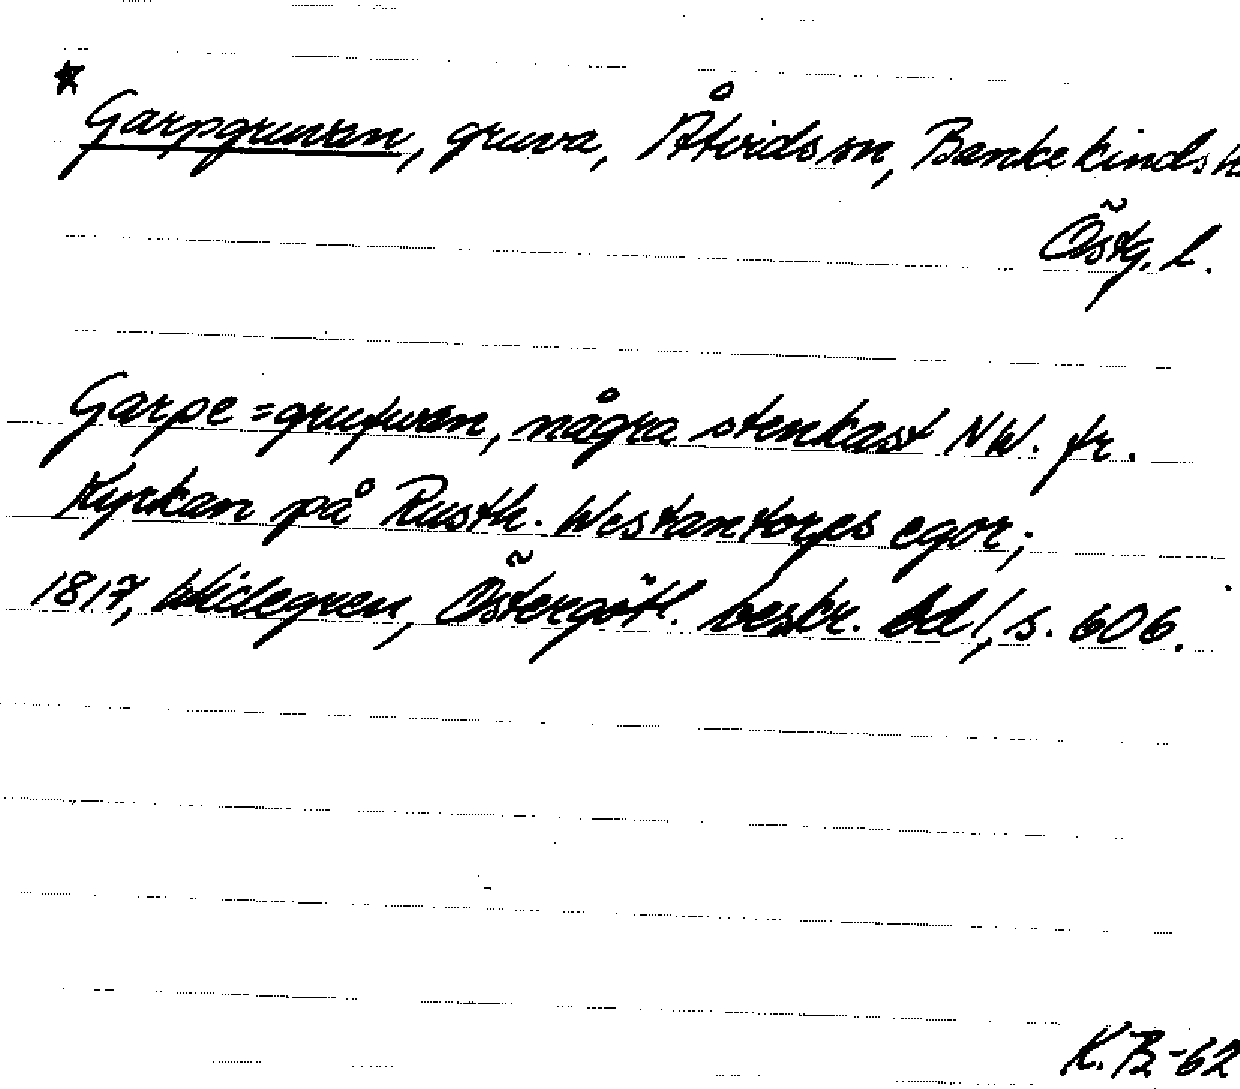 * Garpgruvan, gruva, Åtvids sn, Bankekinds h
Östg. l.
Garpe=grufwan, några stenkast NW. fr.
Kyrkan på Rusth. Westantorges egor;
1817, Widegren, Östergötl. beskr. bd 1, s. 606.
K.B-62